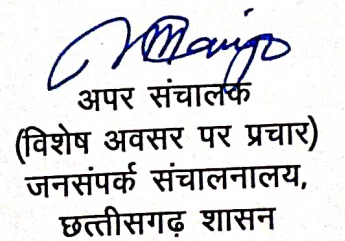 अपर संचालक
(विशेष अवसर पर प्रचार)
जनसंपर्क संचालनालय,
छत्तीसगढ़ शासन